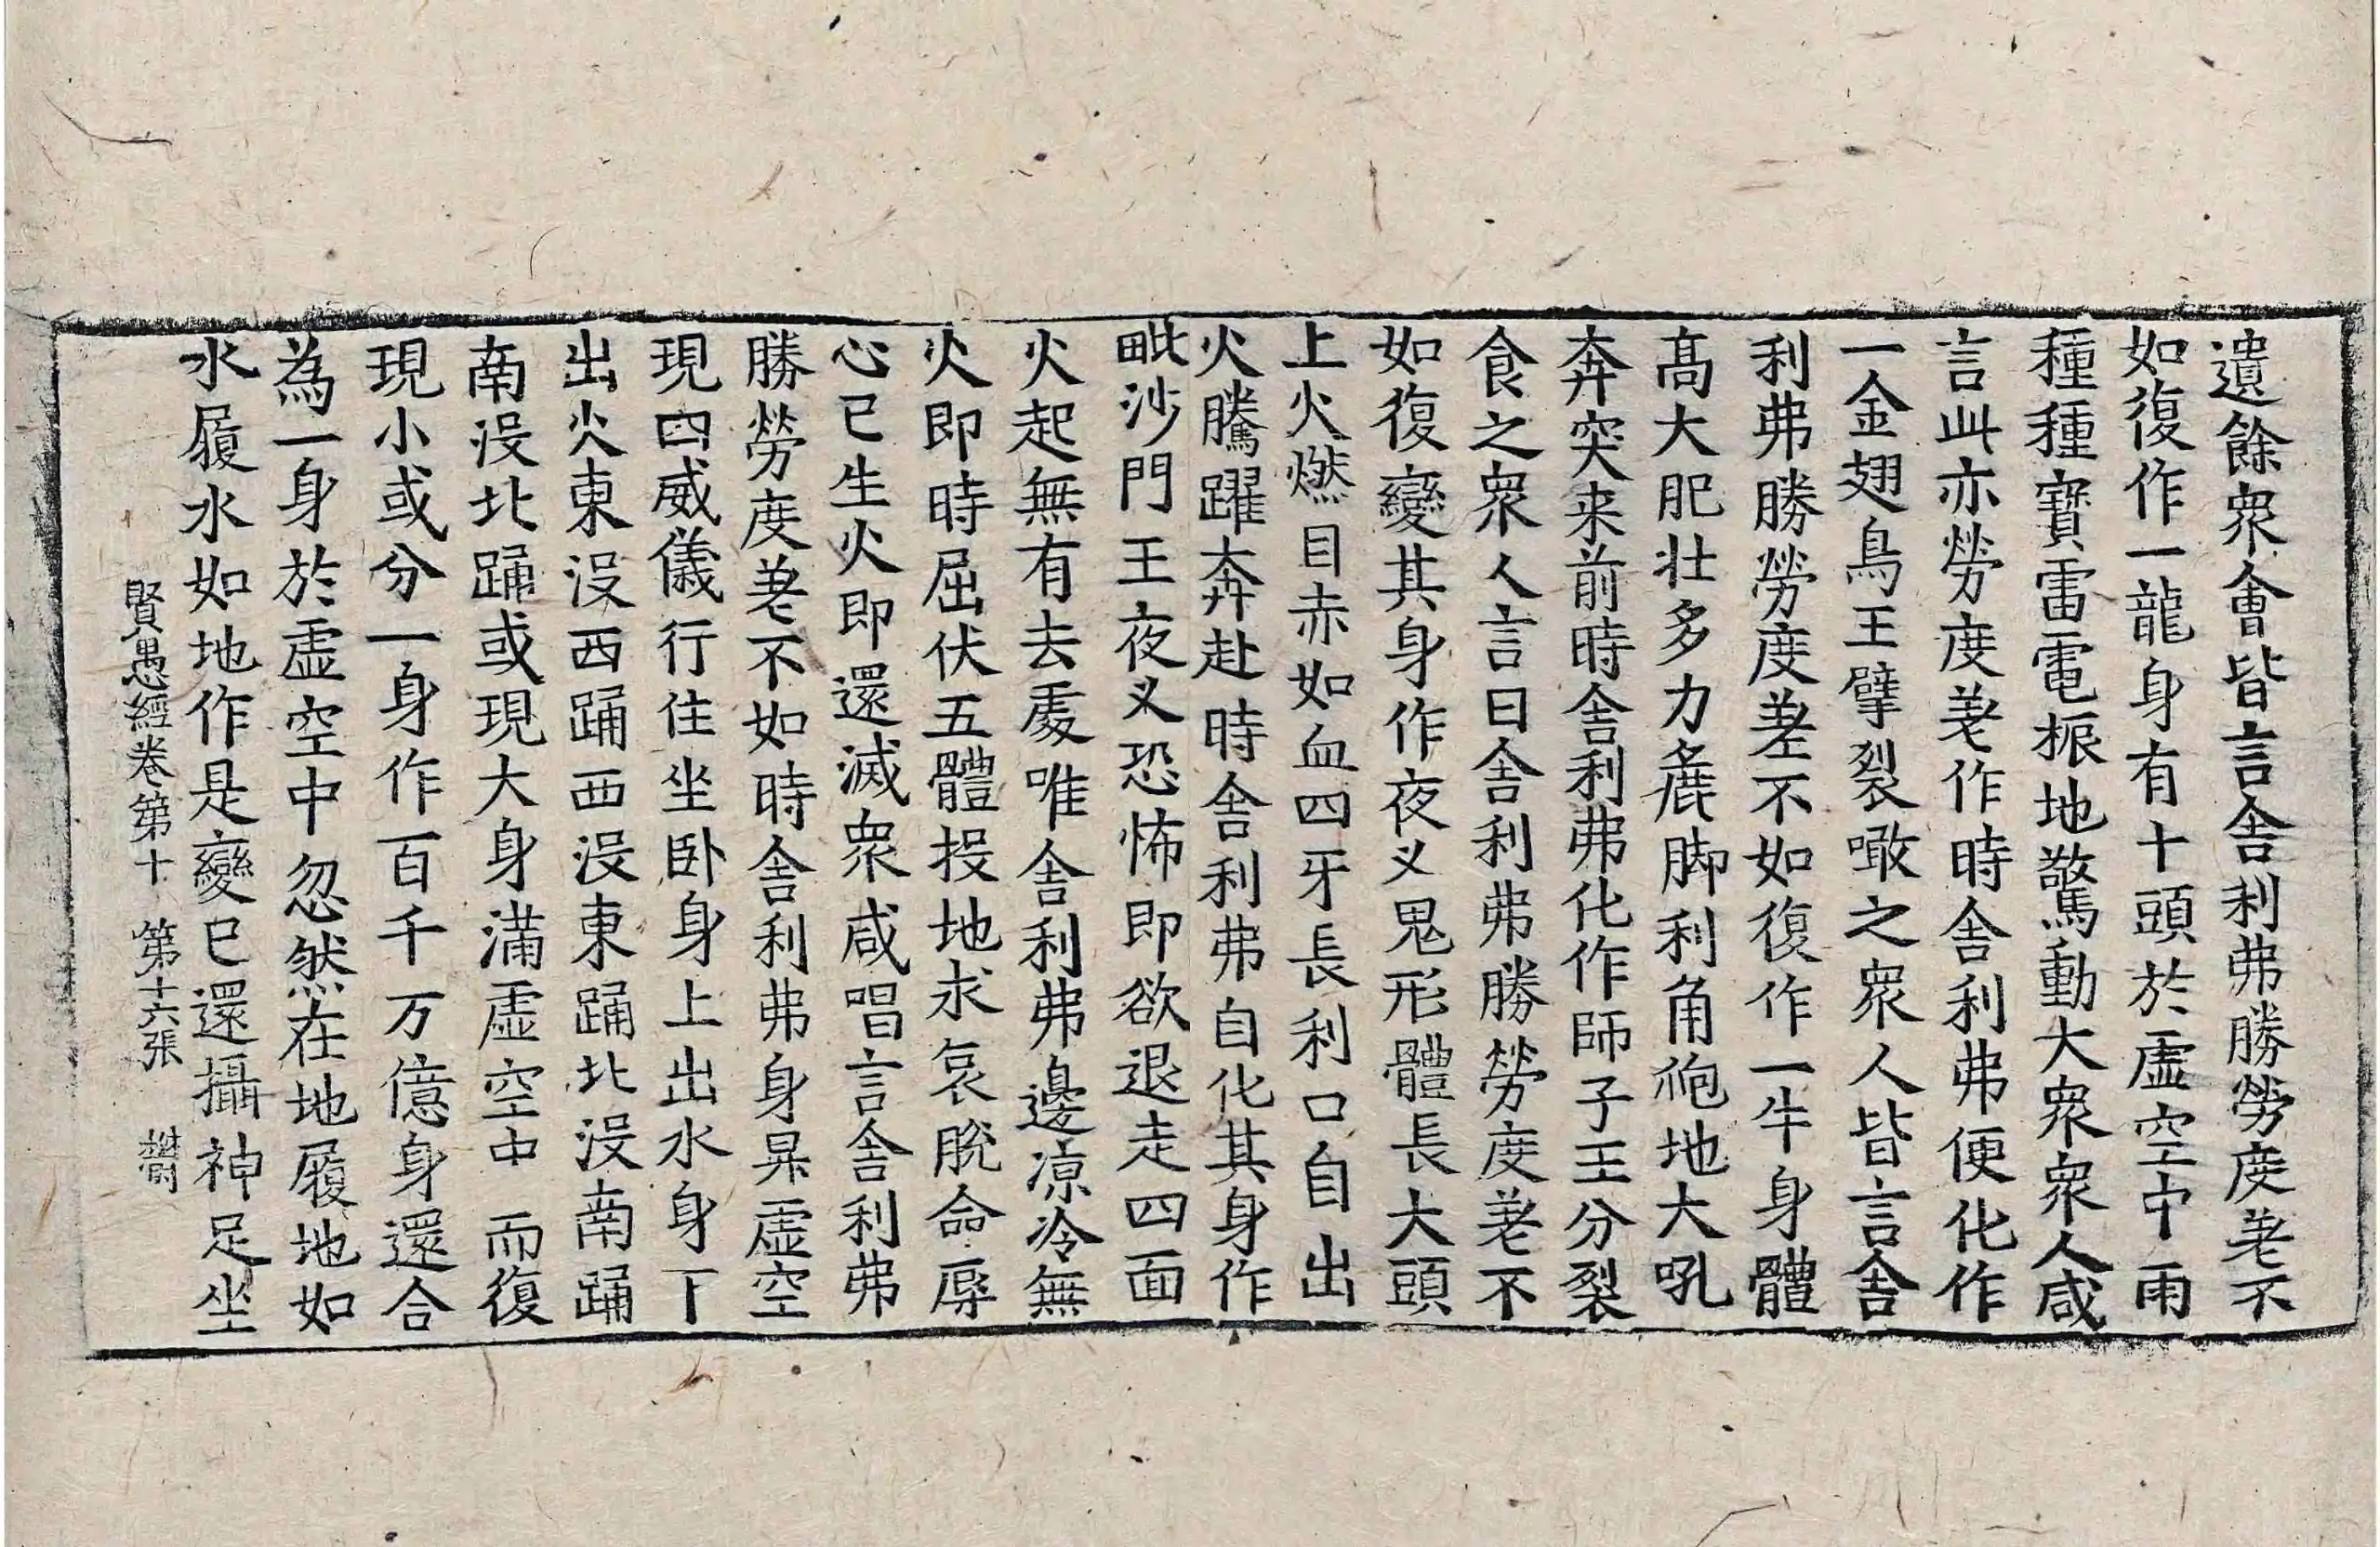 遺餘衆會皆言舍利弗勝勞度差不
如復作一龍身有十頭於虛空中雨
種種寶雷電振地驚動大衆衆人咸
言此亦勞度差作時舍利弗便化作
一金翅鳥王擘裂噉之衆人皆言舍
利弗勝勞度差不如復作一牛身體
髙大肥壯多力麁脚利角䠙地大吼
奔突来前時舍利弗化作師子王分裂
食之衆人言曰舍利弗勝勞度差不
如復變其身作夜叉鬼形體長大頭
上火燃目赤如血四牙長利口自出
火騰躍奔赴時舍利弗自化其身作
毗沙門王夜叉恐怖即欲退走四面
火起無有去處唯舍利弗邊凉冷無
火即時屈伏五體投地求哀脫命辱
心已生火即還滅衆咸唱言舍利弗
勝勞度差不如時舍利弗身昇虛空
現四威儀行住坐卧身上出水身下
出火東没西踊西没東踊北没南踊
南没北踊或現大身滿虛空中而復
現小或分一身作百千万億身還合
為一身於虛空中忽然在地履地如
水履水如地作是變已還攝神足坐
賢愚經卷第十 第十六張